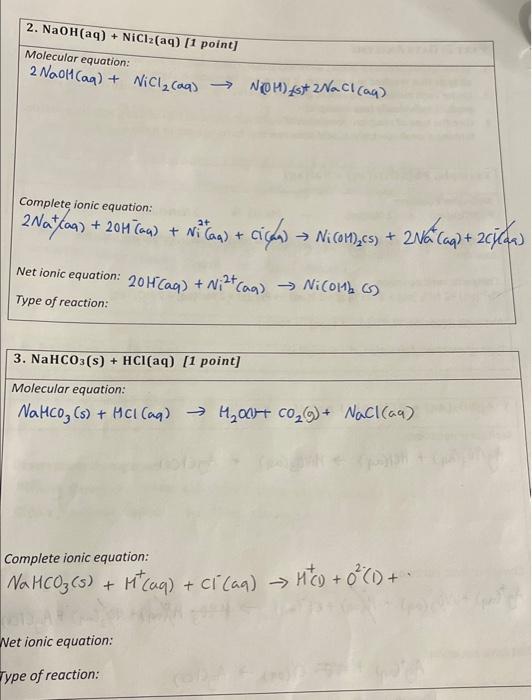 2. NaOH(aq) + NiCl₂(aq) [1 point]
Molecular equation:
2 NaOH(aq) + NiCl₂(aq) → Ni(OH)₂(s)+ 2NaCl(aq)
Complete ionic equation:
2Na⁺(aq) + 2OH⁻(aq) + Ni²⁺(aq) + Cl⁻(aq) → Ni(OH)₂(s) + 2Na⁺(aq) + 2Cl⁻(aq)
Net ionic equation: 2OH⁻(aq) + Ni²⁺(aq) → Ni(OH)₂ (s)
Type of reaction:
3. NaHCO₃(s) + HCl(aq) [1 point]
Molecular equation:
NaHCO₃(s) + HCl(aq) → H₂O(l)+ CO₂(g) + NaCl(aq)
Complete ionic equation:
NaHCO₃(s) + H⁺(aq) + Cl⁻(aq) → H⁺(l) + O²⁻(l) + ·
Net ionic equation:
Type of reaction: